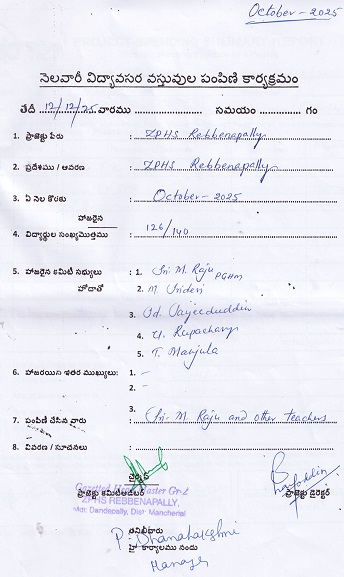 October - 2025
నెలవారీ విద్యావసర వస్తువుల పంపిణి కార్యక్రమం
తేదీ 12/12/25 వారము .................... సమయం .................. గం
1. ప్రాజెక్టు పేరు : ZPHS Rebbenapally
2. ప్రదేశము / ఆవరణ : ZPHS Rebbenapally
3. ఏ నెల కొరకు : October - 2025
హాజరైన
4. విద్యార్థుల సంఖ్యమొత్తము : 126/140
5. హాజరైన కమిటీ సభ్యులు : 1. Sri. M. Raju PGHM
హోదాతో 2. M. Sridevi
3. Sd. Vajeeduddin
4. U. Rupacharya
5. T. Manjula
6. హాజరయిన ఇతర ముఖ్యులు: 1. -
2. -
3.
7. పంపిణి చేసిన వారు : (Sri. M. Raju and other teachers
8. వివరణ / సూచనలు :
చైర్మన్
ప్రాజెక్టు కమిటీ ప్రాజెక్టు డైరెక్టర్
Gazetted Head Master Gr-2
ZPHS REBBENAPALLY,
Mdl: Dandepally, Dist: Mancherial
P. Dhanalakshmi
హై కార్యాలము నందు
Manager